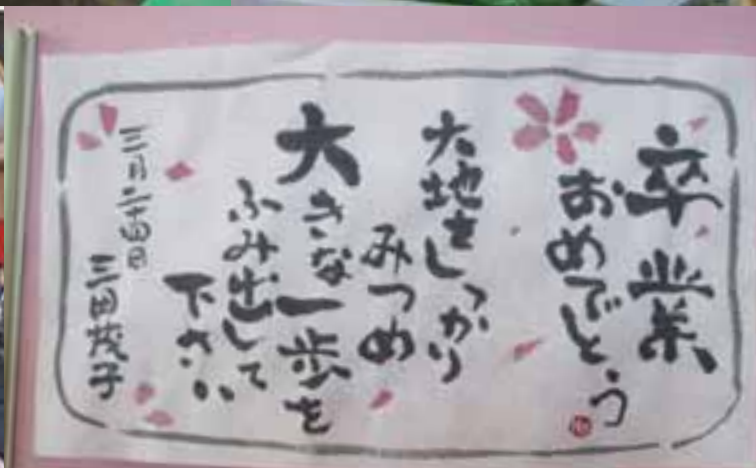 卒業
おめでとう
大地をしっかり
みつめ
大きな一歩を
ふみ出して
下さい
三月二十四日
三田茂子